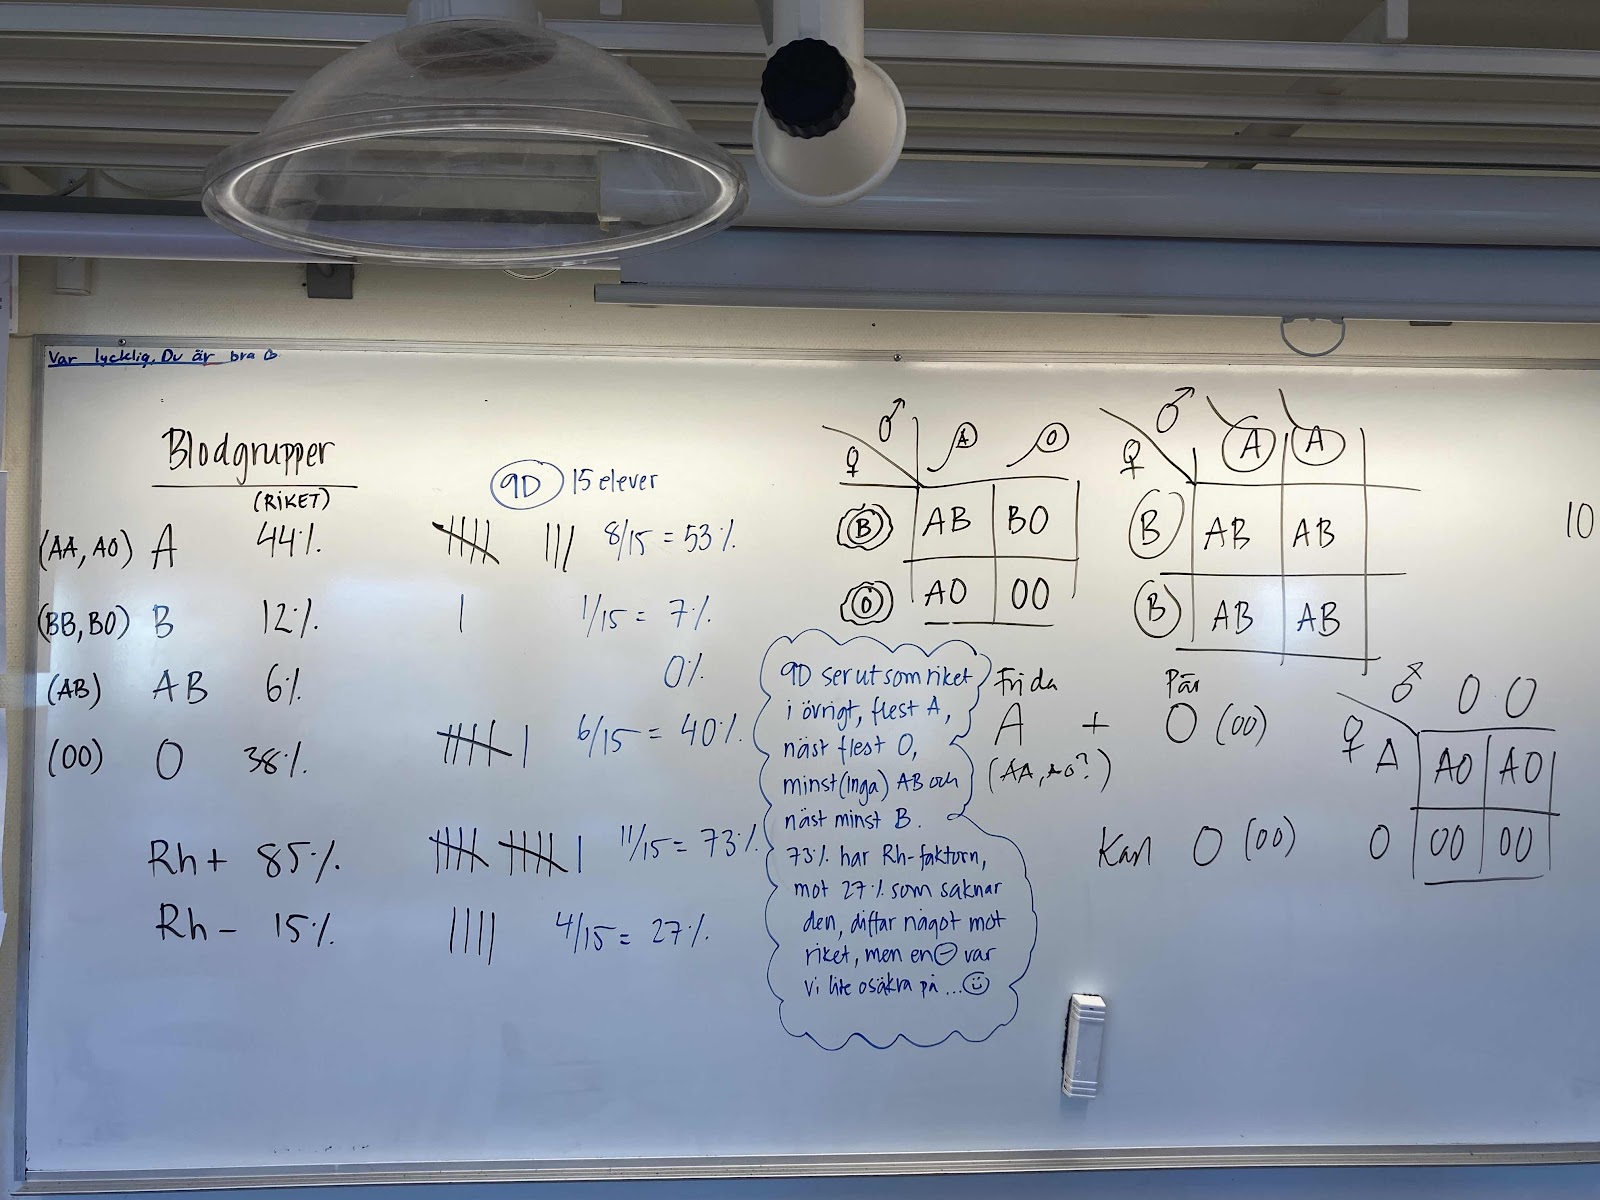 Var lycklig. Du är bra
Blodgrupper
(RIKET)
(AA, AO) A 44%
(BB, BO) B 12%
(AB) AB 6%
(OO) O 38%
Rh+ 85%
Rh- 15%
9D 15 elever
8/15 = 53%
1/15 = 7%
0%
6/15 = 40%
11/15 = 73%
4/15 = 27%
♂ A O
♀
B AB BO
O AO OO
♂ A A
♀
B AB AB
B AB AB
10
9D ser ut som riket
i övrigt, flest A,
näst flest O,
minst (inga) AB och
näst minst B.
73% har Rh-faktorn,
mot 27% som saknar
den, diffar något mot
riket, men en ⊖ var
vi lite osäkra på ... ☺
Frida Pär
A + O (OO)
(AA, AO?)
Kan O (OO)
♂ O O
♀ A AO AO
O OO OO